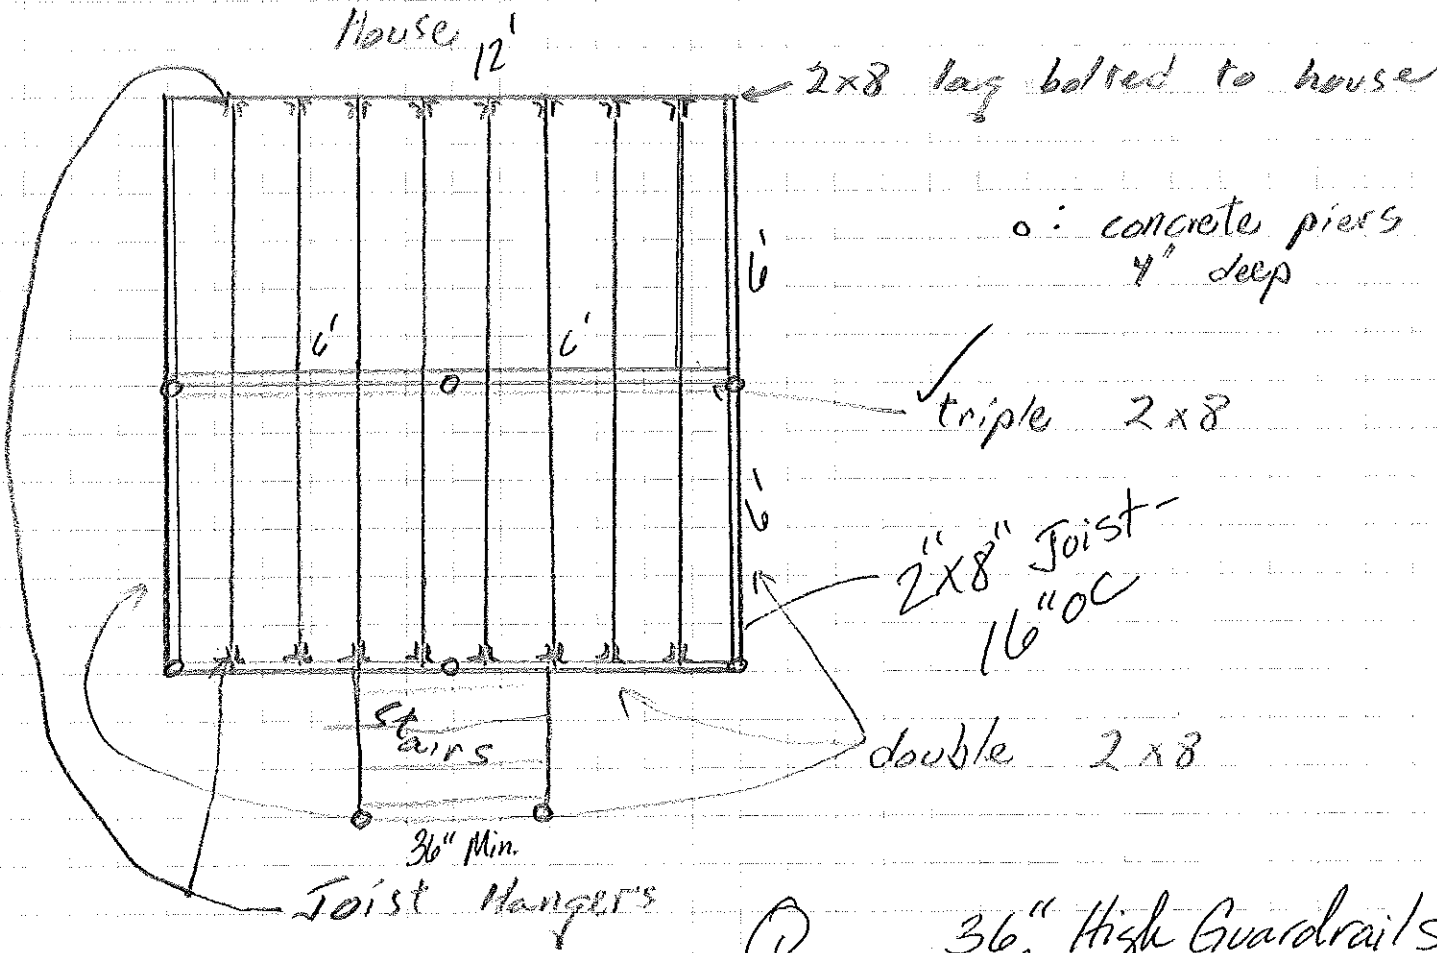 House
12'
2x8 lag bolted to house
o : concrete piers
4' deep
6'
6'
6'
triple 2x8
6'
2"x8" Joist-
16"OC
Stairs
double 2x8
36" Min.
Joist Hangers
36" High Guardrails